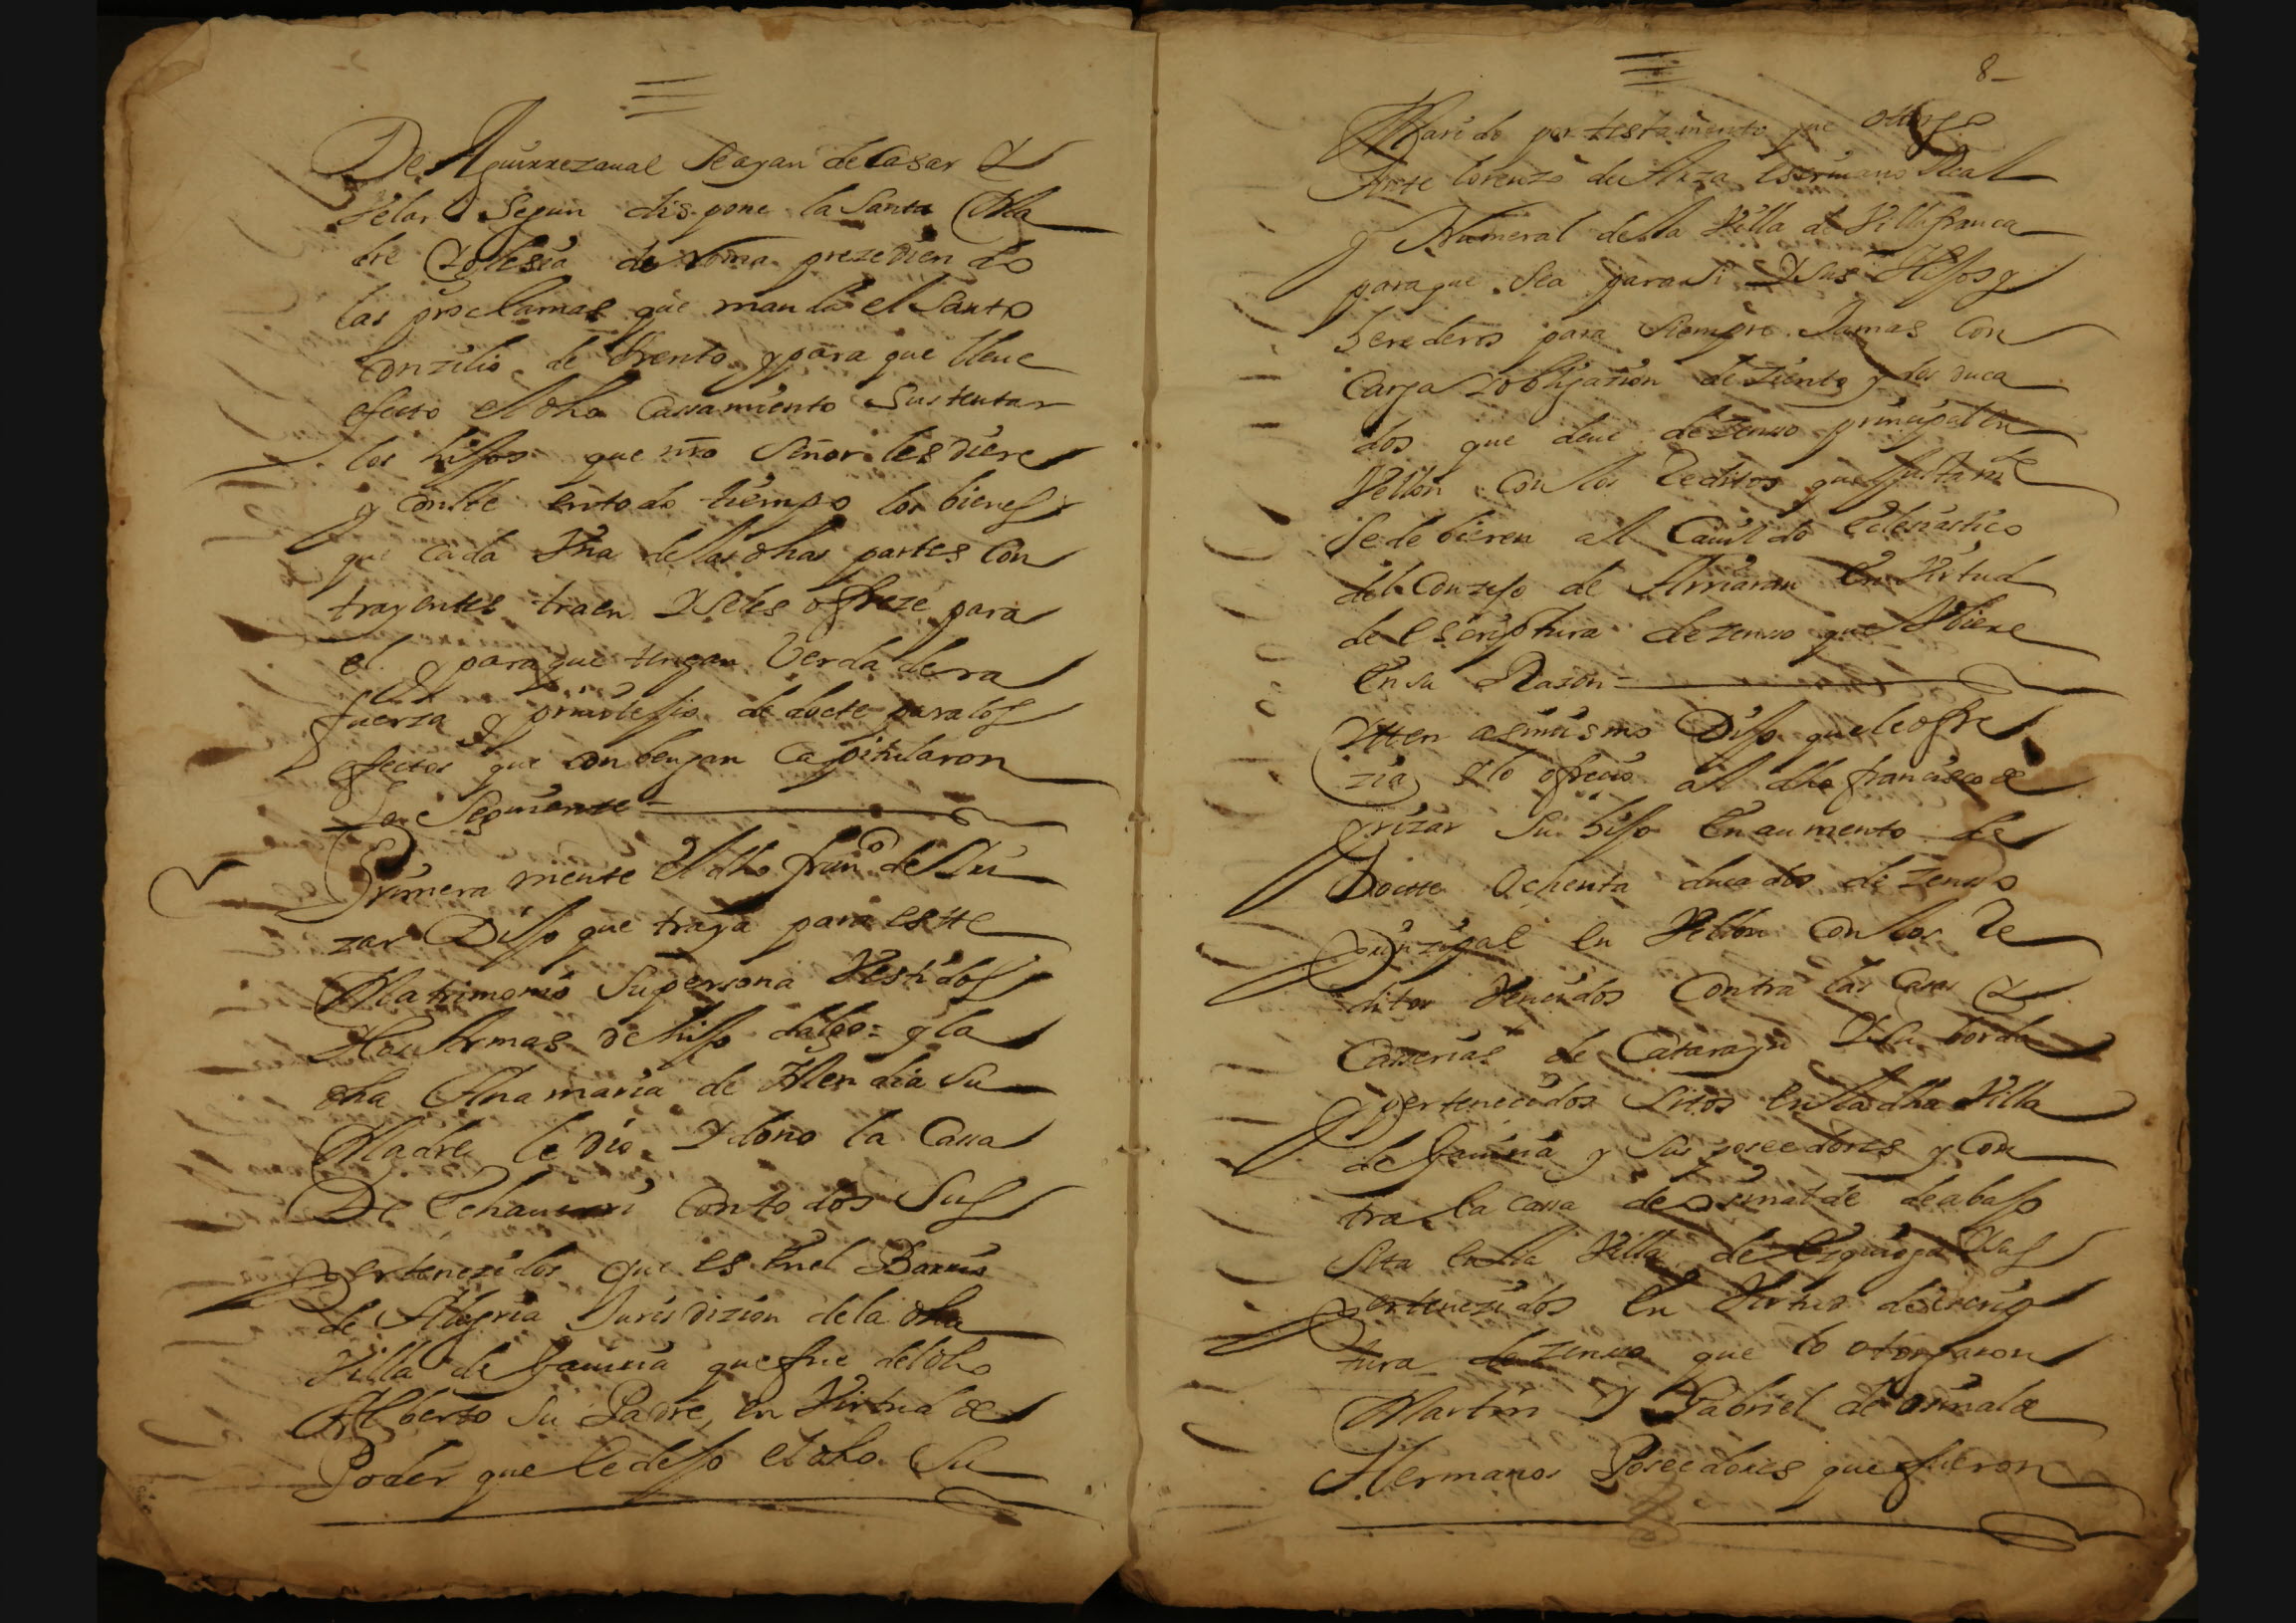 De Aguirrezaual se ayan de Casar Y
Velar segun dispone la Santa Ma
dre Yglesia de Roma prezedien do
las proclamas que manda el Santo
Conzilio de trento y para que lleue
efecto el dho Cassamiento Sustentar
los hijos que nro Señor les diere
y Conste en todo tiempo los bienes
que cada Vna de las dhas partes Con
trayentes traen Y se les ofreze para
el y para que tengan Verdadera
fuerza y priuilesio de docte para los
efectos que conbengan Capitularon
Lo Seguiente =
Primera mente el dho franco de Yri
zar Dijo que traya para este
Matrimonio Su persona Vestidos
Y las Armas de hijo dalgo = y la
dha Ana maria de Mendia Su
Madre le dio Y dono la Cassa
De Echauerri Con todos Sus
pertenezidos que es en el Barrio
de Alegria Jurisdizion de la dha
Villa de Gauiria que fue del dho
Alberto Su Padre, en Virtud de
Poder que le dejo el dho Su
8
Marido por testamento que otorgo
Ante Lorenzo de Ariza escriuano Real
y Numeral de la Villa de Villafranca
para que Sea para Si Y Sus Hijos y
herederos para Siempre Jamas Con
Carga Y obligazion de Ziento y dos duca
dos que deue de Zenso principal en
Vellon Con los Reditos que Justamte
Se debieren al Cauildo eclesiastico
del Conzejo de Arriaran en Virtud
de escriptura de zenso que Vbiere
en su Razon =
Ytten asimismo Dijo que le ofre
zia Y le ofrecio al dho francisco de
Yrizar Su hijo en aumento de
Docte Ochenta ducados de Zenso
prinzipal en Vellon Con los Re
ditos Venzidos Contra las Casas Y
Casserias de Cataragui Y la borda
pertenecidos Sitos en la dha Villa
de Gauiria y Sus poseedores y Con
tra la cassa de osinalde de abajo
Sita en la Villa de Ezquioga Y Sus
pertenezidos en Virtud de escrip
tura de Zenso que lo otorgaron
Martin Y Gabriel de osinalde
Hermanos Poseedores que fueron